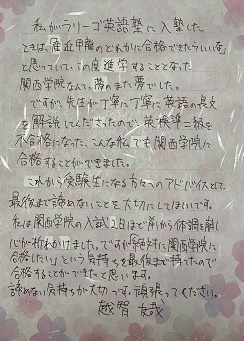 私がフリーゴ英語塾に入塾した
ときは、産近甲龍のどれかに合格できたらうれしいな
と思っていて、この度進学することとなった
関西学院なんて、夢のまた夢でした。
ですが、先生が丁寧に丁寧に英語の長文
を解説してくださったので、英検準二級を
不合格になった、こんな私でも関西学院に
合格することができました。
これから受験生になる方々へのアドバイスとして
最後まで諦めないことを大切にしてほしいです。
私は関西学院の入試2日ほど前から体調を崩し
心が折れかけました。ですが「絶対に関西学院に
合格したい」という気持ちを最後まで持ったので
合格することができたと思います。
諦めない気持ちが大切です。頑張ってください。
越智 友哉